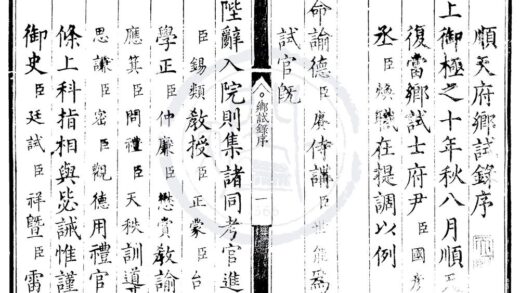 順天府鄉試錄序
上御極之十年秋八月順天
復當鄉試士府尹臣國彥
丞臣煥職在提調以例
命諭德臣賡侍講臣世能為
試官既
鄉試錄序 一
陛辭入院則集諸同考官進
臣錫類教授臣正蒙臣台
學正臣仲廉臣懋賞教諭
應箕臣問禮臣天秩訓導
思謙臣密臣觀德用禮官
條上科指相與毖誡惟謹
御史臣廷試臣祥暨臣雷